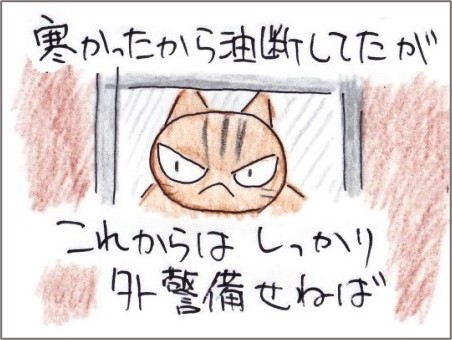 寒かったから油断してたが
これからは しっかり
外警備せねば